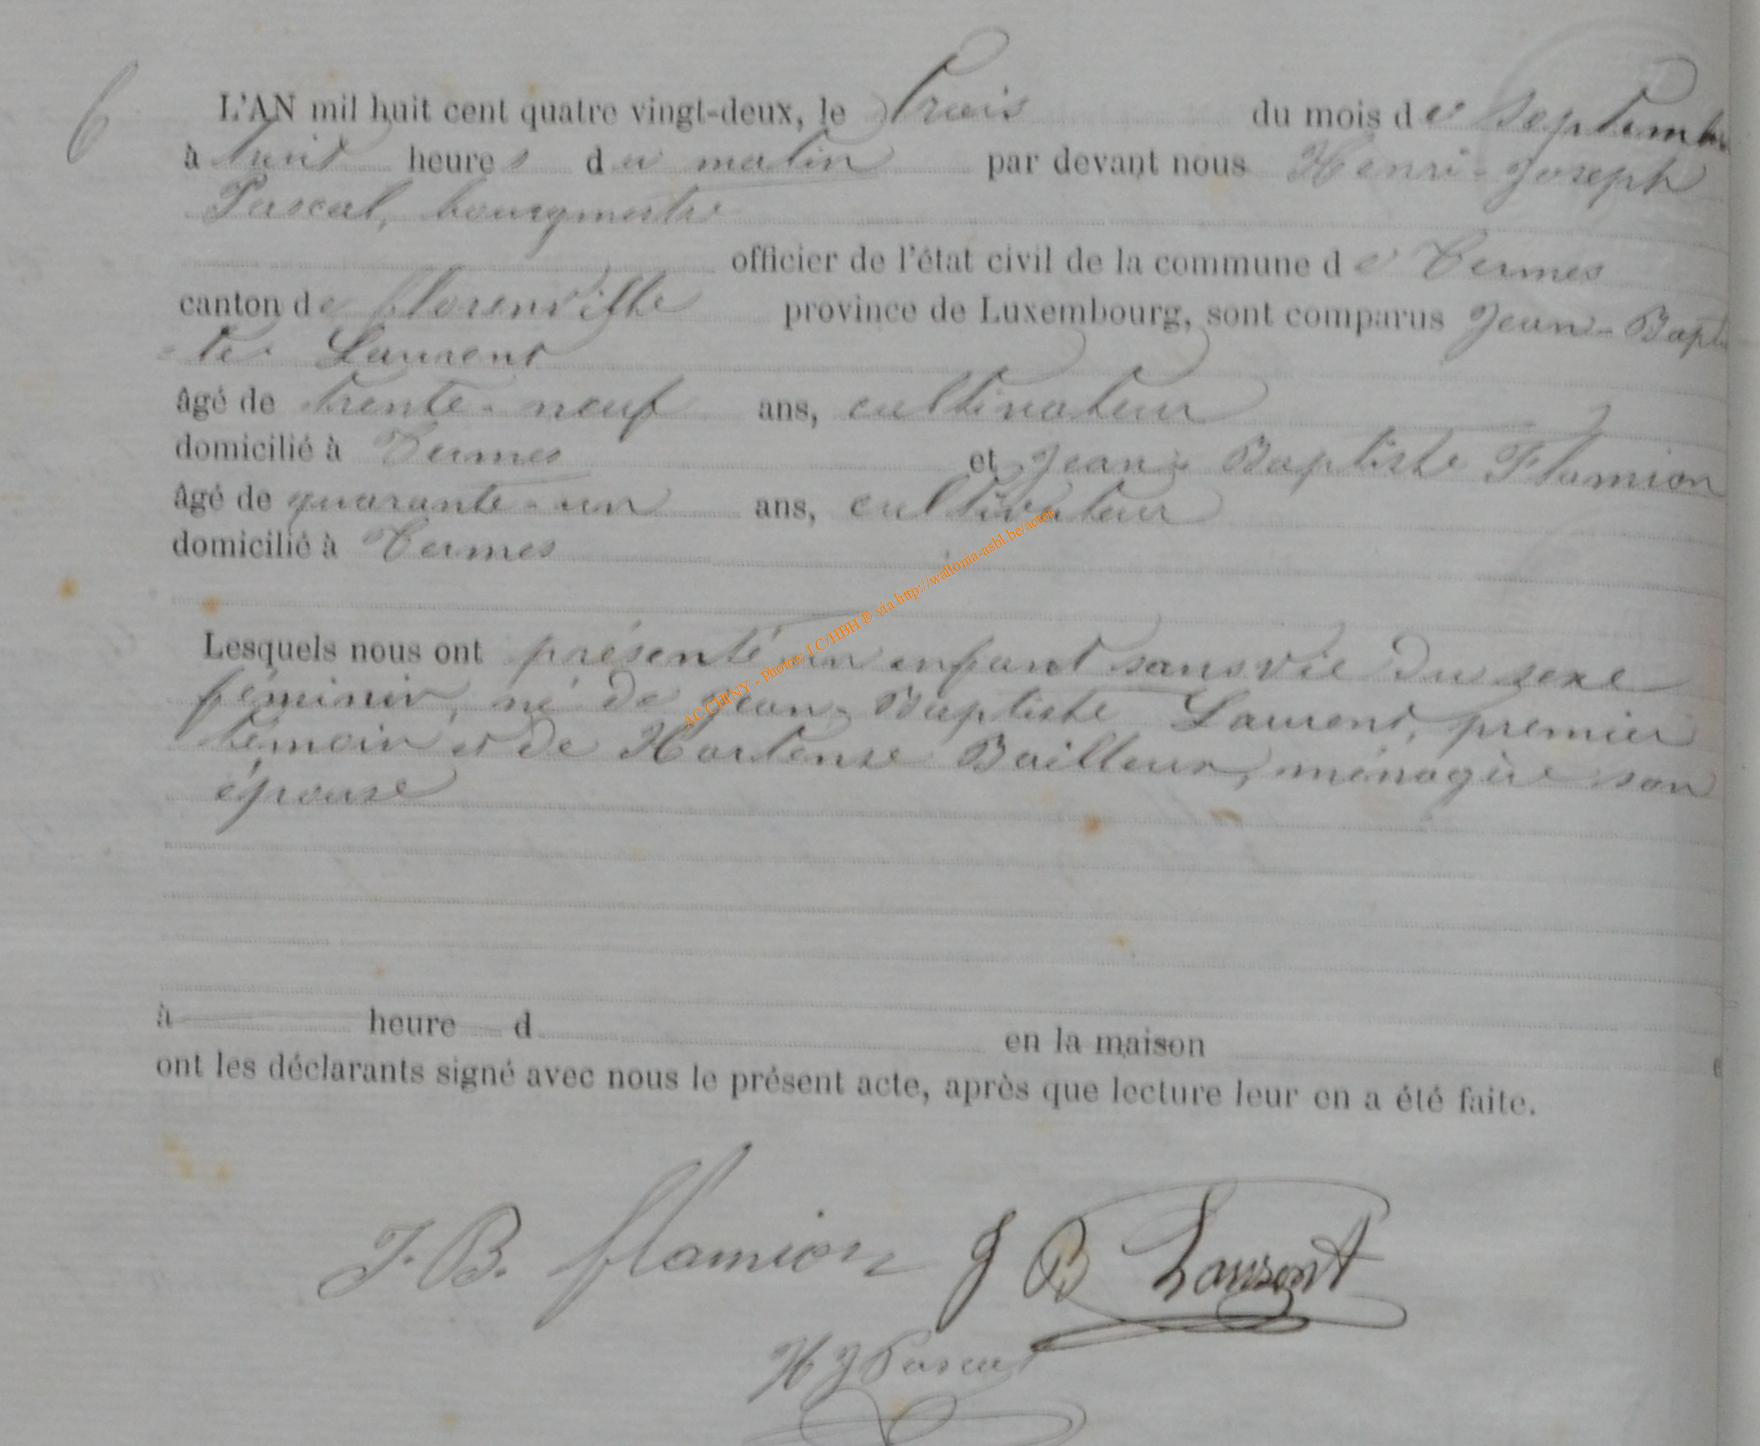 6
L'AN mil huit cent quatre vingt-deux, le trois du mois de septembre
à huit heures du matin par devant nous Henri-Joseph
Pascal, bourgmestre
officier de l'état civil de la commune de Termes
canton de florenville province de Luxembourg, sont comparus Jean-Baptis
-te Laurent
âgé de trente-neuf ans, cultivateur
domicilié à Termes et Jean-Baptiste Flamion
âgé de quarante-un ans, cultivateur
domicilié à Termes
Lesquels nous ont présenté un enfant sans vie du sexe
féminin, né de Jean-Baptiste Laurent, premier
témoin et de Hortense Bailleux, ménagère son
épouse
à heure d en la maison
ont les déclarants signé avec nous le présent acte, après que lecture leur en a été faite.
J. B. flamion J B Laurent
H J Pascal
ACCHINY - Photos J.C/HBH @ via http://wallonia-asbl.be/actes